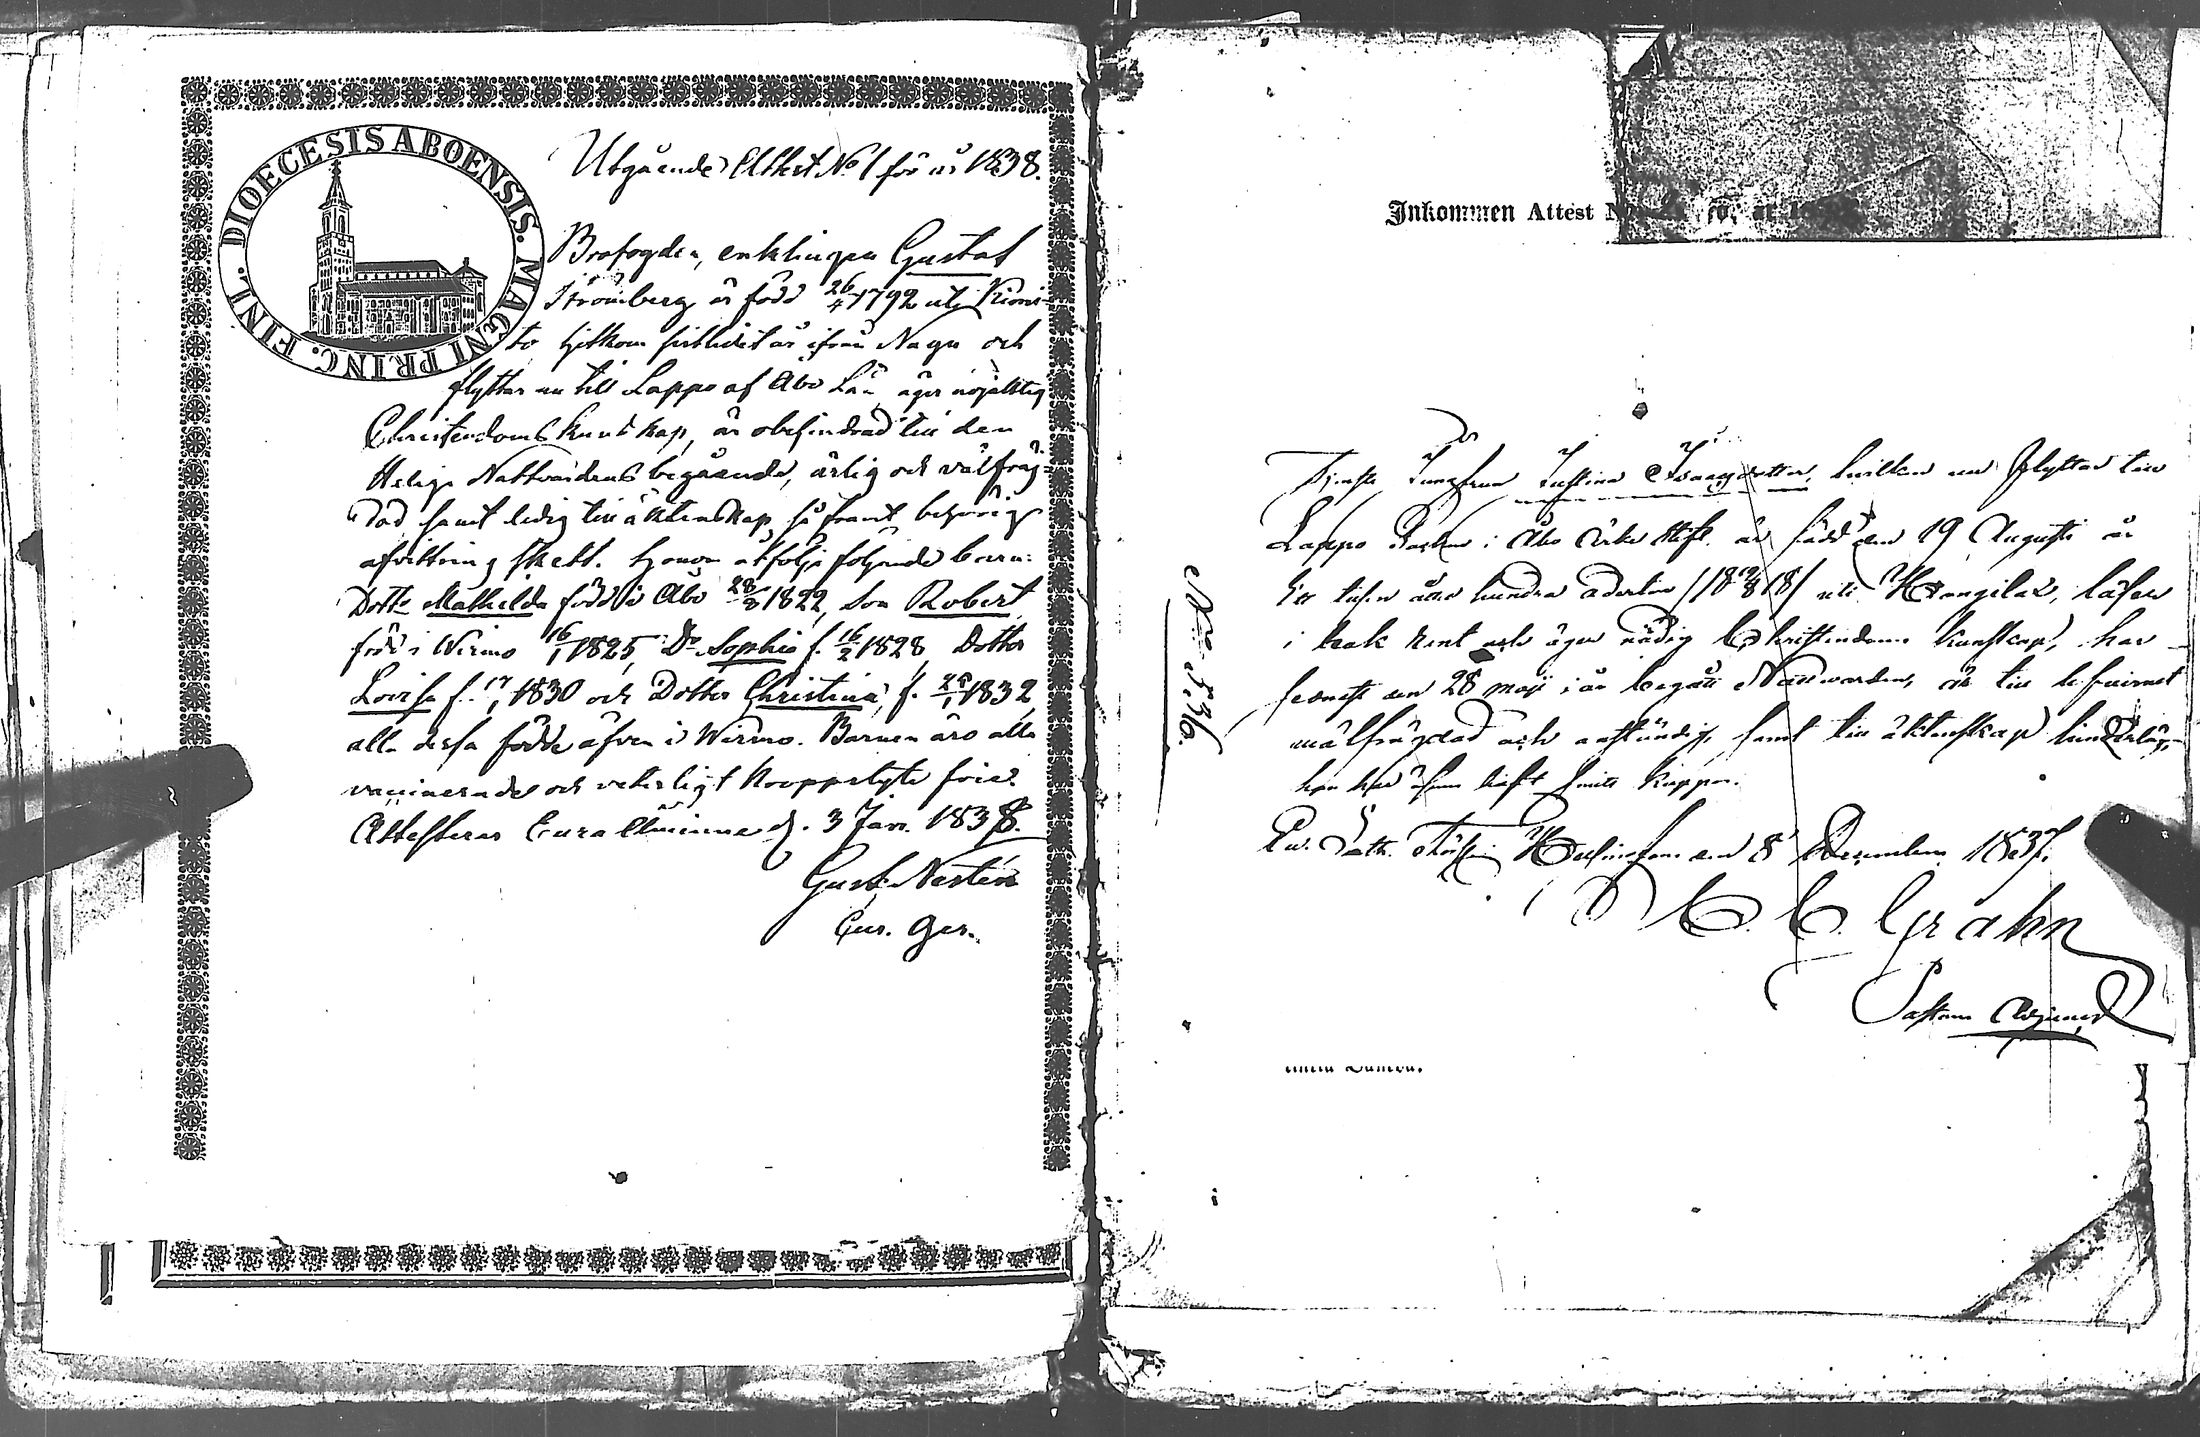 DIOECESIS ABOENSIS. MAGNI PRINC. FINL.
Utgående Attest No 1 för år 1838.
Brofogden, enklingen Gustaf
Strömberg är född 26/4 1792 uti Kimi-
to hitkom sistlidit år ifrån Nagu och
flyttar nu till Lappo af Åbo Län, äger nöjaktig
Christendoms kunskap, är obehindrad till den
Heliga Nattvardens begående, ärlig och välfräg-
dad samt ledig till äktenskap, så framt behörig
afvittring skett. Honom åtfölja följande barn:
Dotter Mathilda född i Åbo 28/8 1822, Son Robert
född i Wirmo 16/1 1825, Do Sophia f. 16/2 1828, Dotter
Lovisa f. 17/1 1830 och Dotter Christina, f. 1832,
alla dessa födde äfven i Wirmo. Barnen äro alla
vaccinerade och veterligt
Attesterar Cura Aminne d. 3 Jan. 1838.
Gust. Nestén
Inkommen Attest
Jungfrun Justina Isaacsdotter, hvilken nu flyttar till
Lappo Socken i Åbo Erke Stift, är född den 19 Augusti år
Ett tusen åtta hundra aderton /19/8 1818/ uti Kangilax, läser
i bok rent och äger nödig Christendoms kunskap, har
senast den 28 Maji i år begått Nattvarden, är till
välfrägdad och anständig, samt till äktenskap hinderlös,
hon har äfven haft Koppor.
Helsingfors den 8 December 1837.
C. Grahn
Pastor